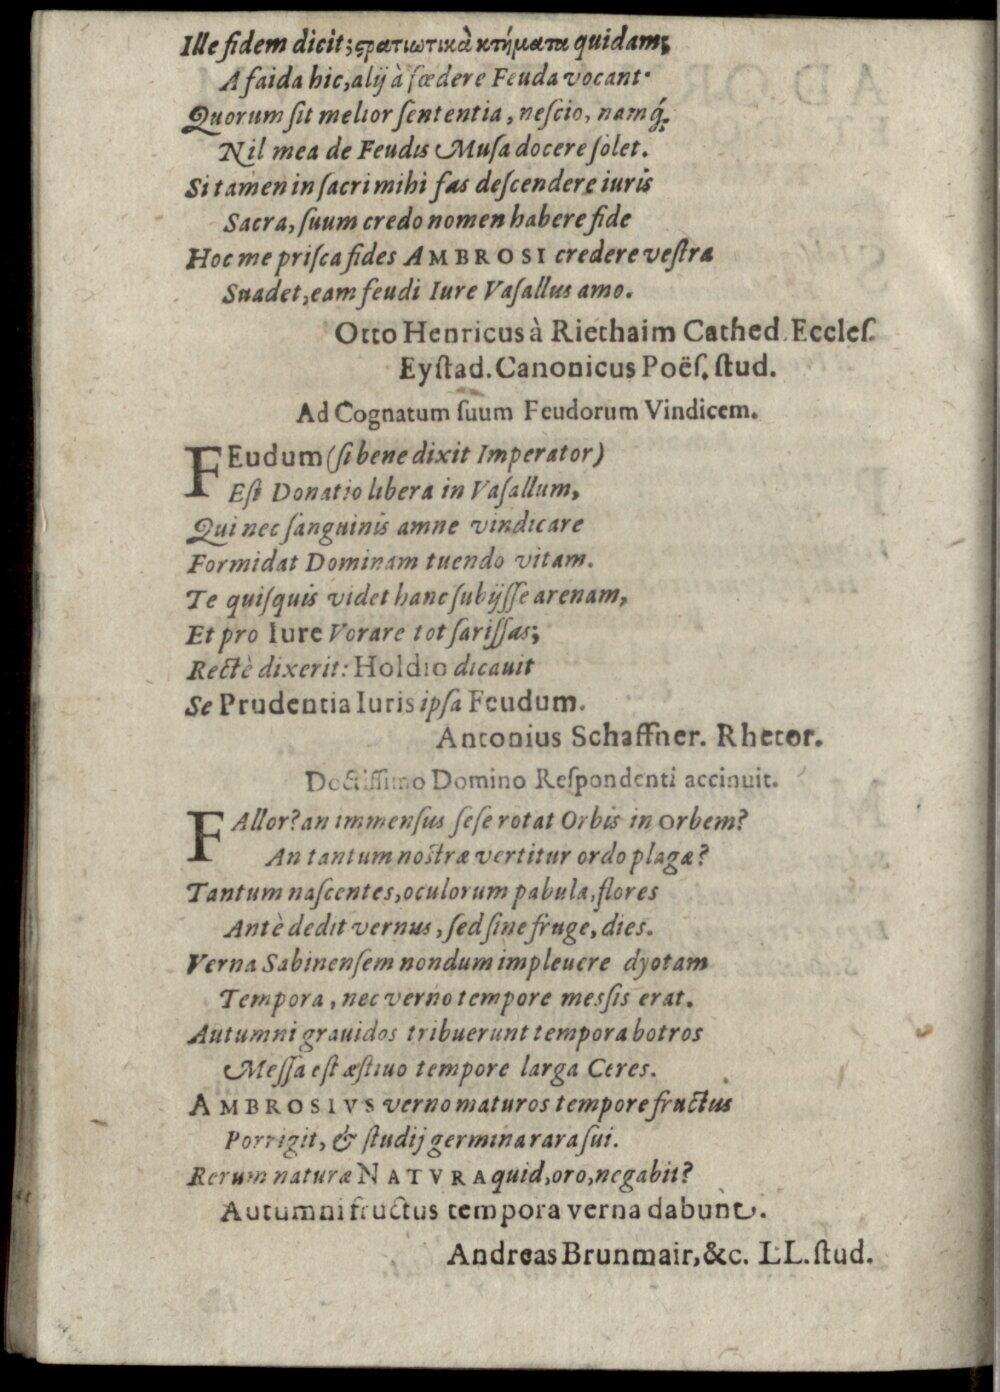 Ille fidem dicit; ςρατιωτικὰ κτήματα quidam;
A faida hic, alij à fœdere Feuda vocant.
Quorum ſit melior ſententia, neſcio, namq́;
Nil mea de Feudis Muſa docere ſolet.
Si tamen in ſacri mihi fas deſcendere iuris
Sacra, ſuum credo nomen habere fide
Hoc me priſca fides AMBROSI credere veſtra
Suadet, eam feudi Iure Vaſallus amo.
Otto Henricus à Riethaim Cathed. Eccleſ.
Eyſtad. Canonicus Poëſ. ſtud.
Ad Cognatum ſuum Feudorum Vindicem.
FEudum (ſi bene dixit Imperator)
Eſt Donatio libera in Vaſallum,
Qui nec ſanguinis amne vindicare
Formidat Dominam tuendo vitam.
Te quiſquis videt hanc ſubijſſe arenam,
Et pro Iure Vorare tot ſariſſas;
Rectè dixerit: Holdio dicauit
Se Prudentia Iuris ipſa Feudum.
Antonius Schaffner. Rhetor.
Doctiſſimo Domino Reſpondenti accinuit.
FAllor? an immenſus ſeſe rotat Orbis in orbem?
An tantum nostræ vertitur ordo plagæ?
Tantum naſcentes, oculorum pabula, flores
Antè dedit vernus, ſed ſine fruge, dies.
Verna Sabinenſem nondum impleuere dyotam
Tempora, nec verno tempore meſsis erat.
Autumni grauidos tribuerunt tempora botros
Meſſa eſt æſtiuo tempore larga Ceres.
AMBROSIVS verno maturos tempore fructus
Porrigit, & ſtudij germina rara ſui.
Rerum naturæ NATVRA quid, oro, negabit?
Autumni fructus tempora verna dabunt.
Andreas Brunmair, &c. LL. ſtud.